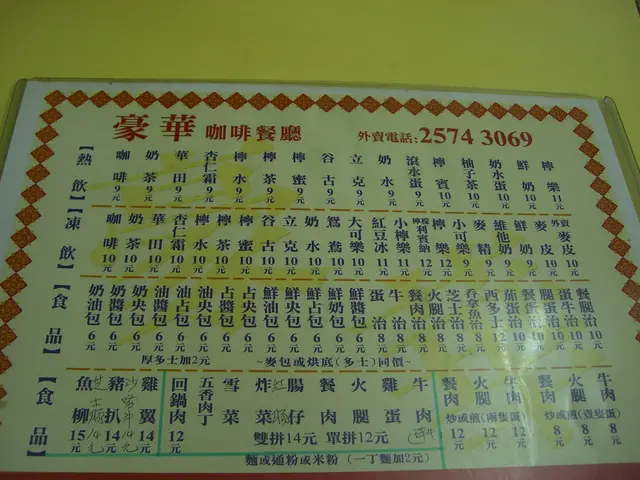 豪華 咖啡餐廳
外賣電話:2574 3069
【熱飲】
咖啡 9元
奶茶 9元
華田 9元
杏仁霜 9元
檸水 9元
檸茶 9元
檸蜜 9元
谷古 9元
立克 9元
奶水 9元
滾水蛋 9元
檸賓 9元
柚子茶 10元
奶水蛋 10元
鮮奶 10元
檸樂 11元
【凍飲】
咖啡 10元
奶茶 10元
華田 10元
杏仁霜 10元
檸水 10元
檸茶 10元
檸蜜 10元
谷古 10元
立克 10元
奶水 10元
鴛鴦 10元
大可樂 10元
紅豆冰 11元
小檸樂 11元
檸檬利賓納 12元
檸樂 12元
小可樂 9元
麥精 9元
維他奶 9元
鮮奶 9元
麥皮 10元
外賣麥皮 10元
【食品】
奶油包 6元
奶醬包 6元
奶央包 6元
油醬包 6元
油占包 6元
油央包 6元
占醬包 6元
占央包 6元
鮮油包 6元
鮮央包 6元
鮮奶包 6元
蛋治 8元
牛治 8元
餐肉治 8元
火腿治 8元
芝士治 8元
吞拿魚治 8元
西多士 12元
茄蛋治 10元
餐蛋治 10元
腿蛋治 10元
蛋牛治 10元
餐腿治 10元
厚多士加2元
~麥包或烘底(多士)同價~
【食品】
魚柳 15元
豬扒 14元
雞翼 14元
回鍋肉 12元
五香肉丁
雪菜
炸
腸仔
餐肉
火腿
雞蛋
牛肉
雙拼14元 單拼12元
麵或通粉或米粉 (一丁麵加2元)
餐肉 12元
火腿 12元
牛肉 12元
炒或煎(兩隻蛋)
餐肉 8元
火腿 8元
牛肉 8元
炒或煎(壹隻蛋)